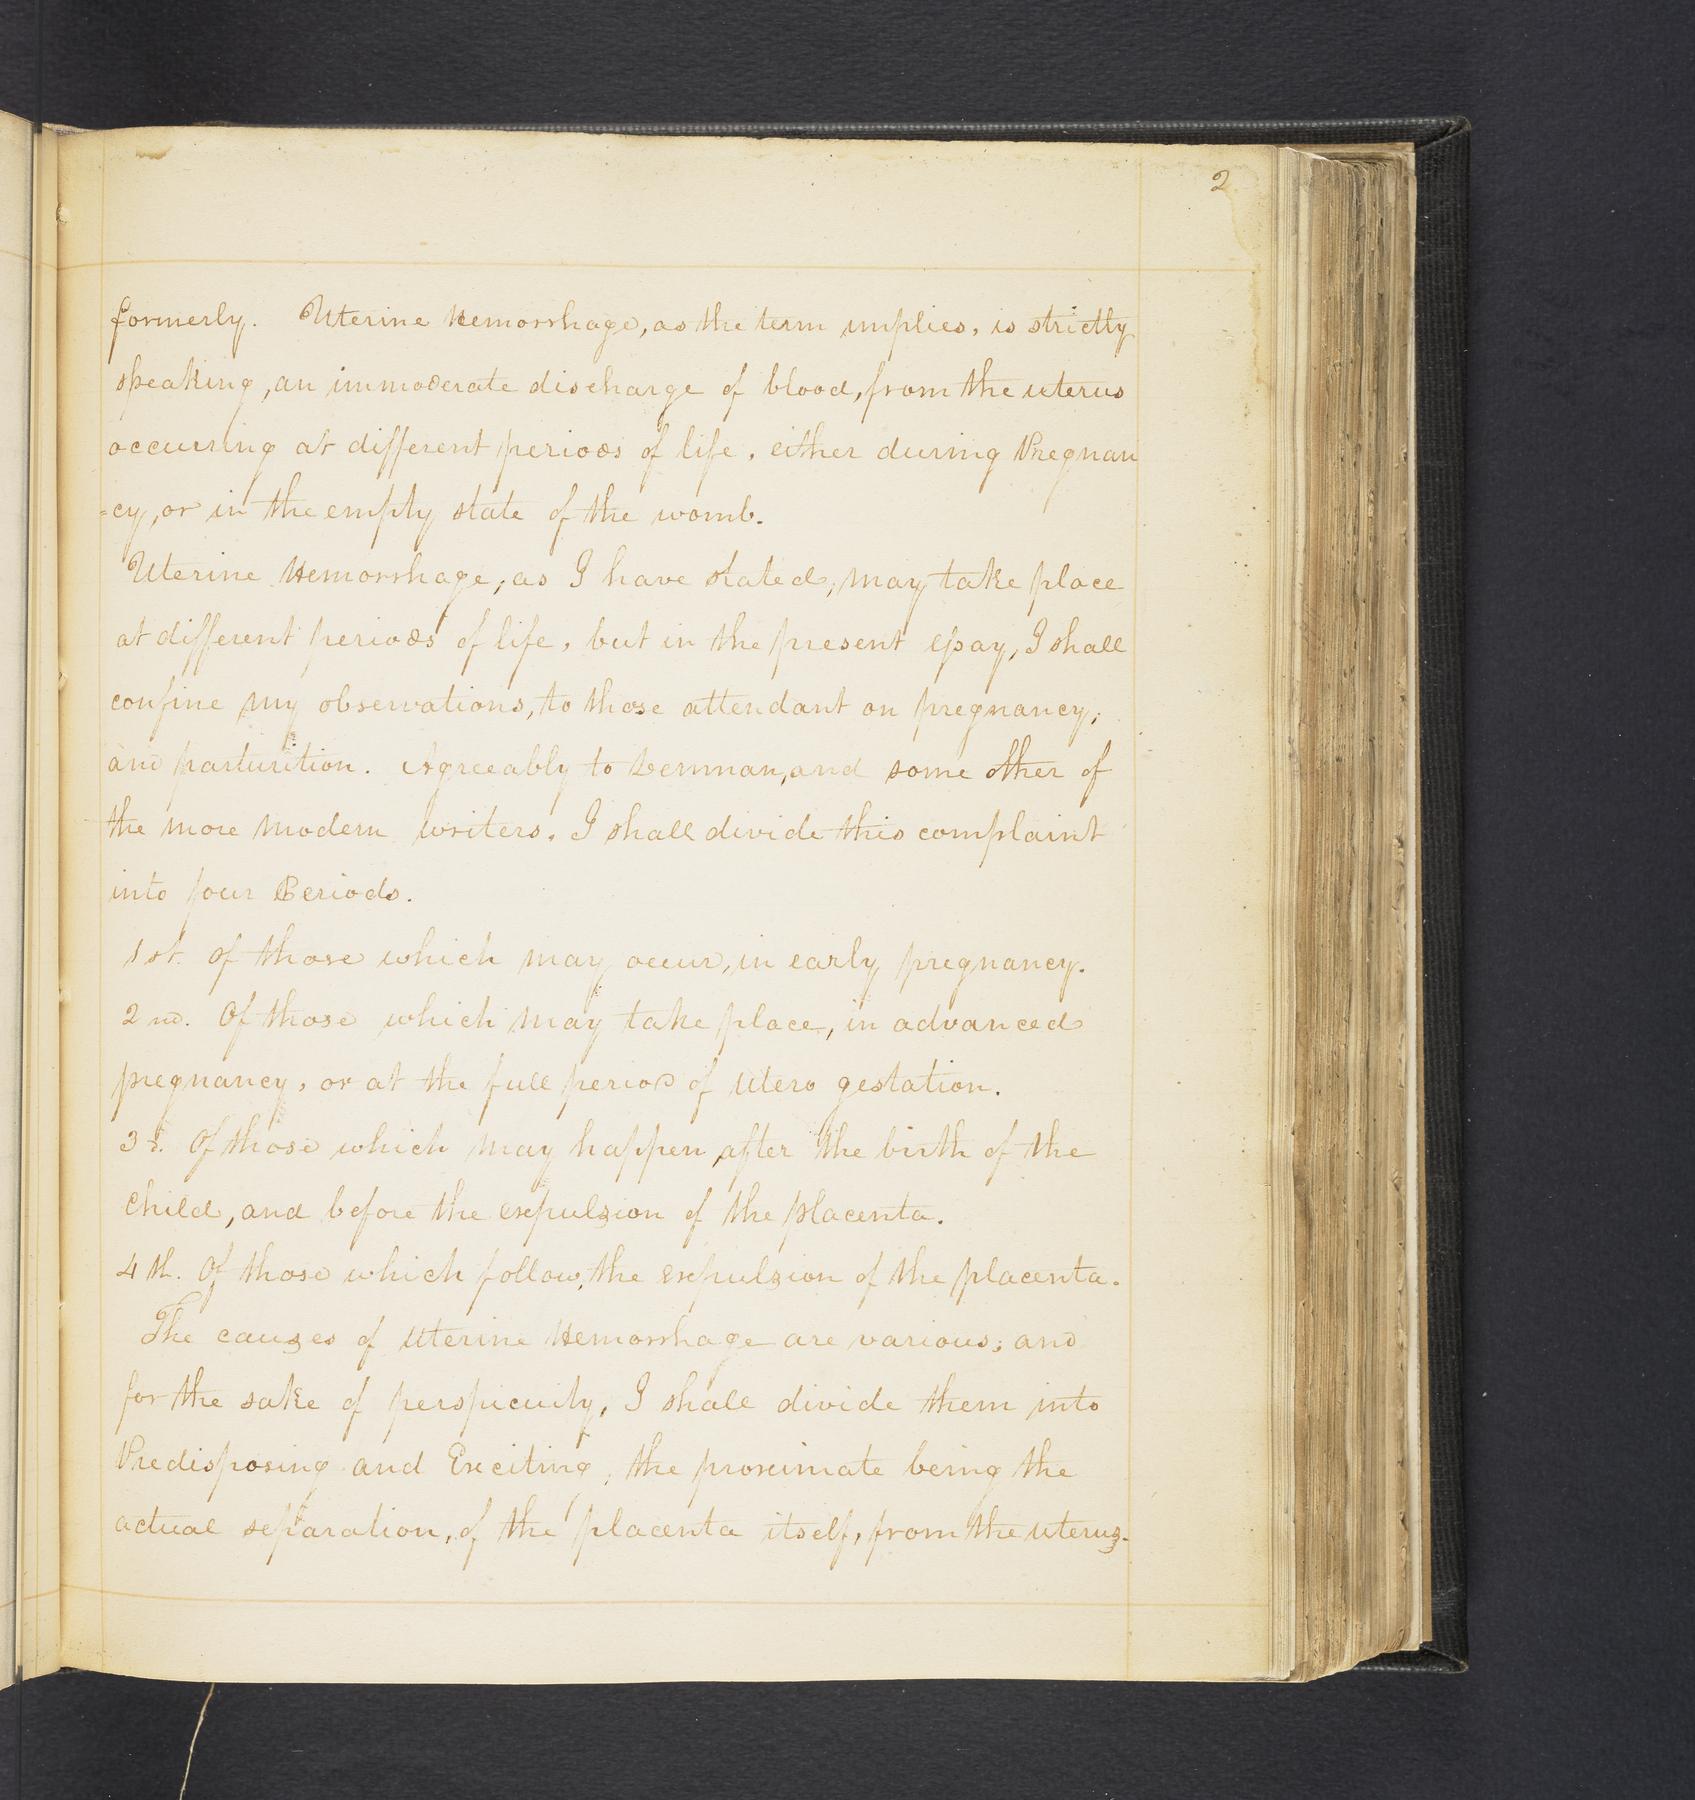 2
formerly. Uterine Hemorrhage, as the term implies, is strictly
speaking, an immoderate discharge of blood, from the uterus
occurring at different periods of life, either during Pregnan
=cy, or in the empty state of the womb.
Uterine Hemorrhage, as I have stated, may take place
at different periods of life, but in the present essay, I shall
confine my observations, to those attendant on pregnancy,
and parturition. Agreeably to Denman, and some other of
the more modern writers. I shall divide this complaint
into four Periods.
1st. Of those which may occur, in early pregnancy.
2nd. Of those which may take place, in advanced
pregnancy, or at the full period of utero gestation.
3d. Of those which may happen, after the birth of the
child, and before the expulsion of the placenta.
4th. Of those which follow, the expulsion of the placenta.
The causes of Uterine Hemorrhage are various; and
for the sake of perspicuity, I shall divide them into
Predisposing and Exciting, the proximate being the
actual separation, of the placenta itself, from the uterus.